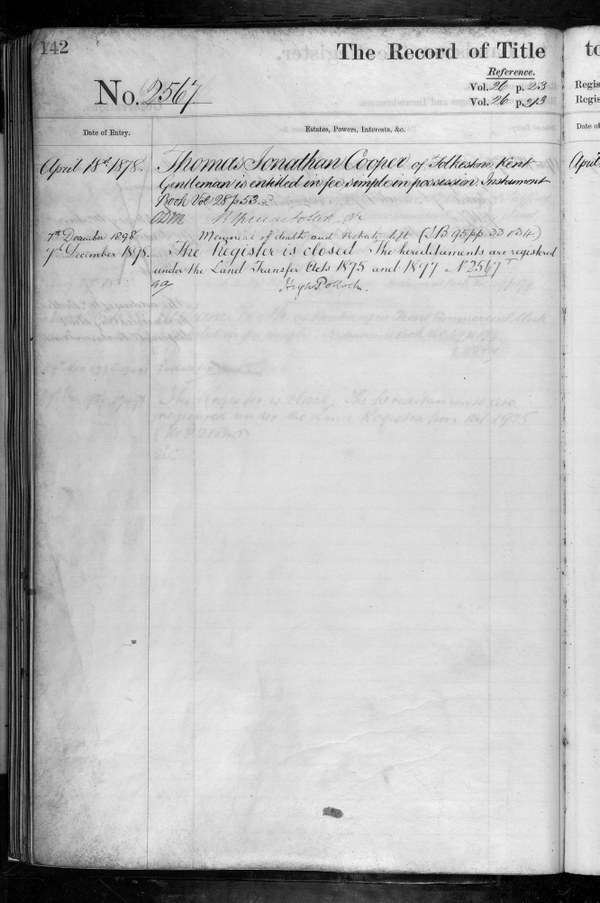 142
The Record of Title
to
Reference.
No. 2567
Vol. 26 p. 23
Vol. 26 p. 213
Regis
Regis
Date of Entry.
Estates, Powers, Interests, &c.
Date of
April 18th 1878.
Thomas Jonathan Cooper of Folkestone Kent
April
Gentleman is entitled in fee simple in possession Instrument
Book Vol 28 p 53.
7th December 1898
Memorial of death and Probate left (I.B. 95 pp. 33 & 34.)
7th December 1898.
The Register is closed The hereditaments are registered
under the Land Transfer Acts 1875 and 1897 No 2567
Hugh Pollock.
The Register is closed. The hereditaments are
registered under the Land Registration Act 1925